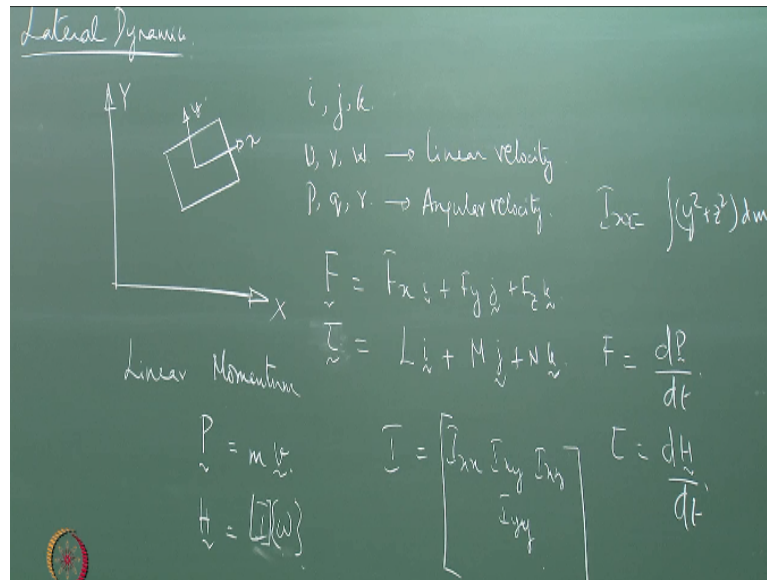 Lateral Dynamic
Y
y
x
X
i, j, k
U, v, w → Linear velocity
P, q, r → Angular velocity
I_xx = ∫(y²+z²) dm
F = F_x i + F_y j + F_z k
τ = L i + M j + N k
F = dP/dt
Linear Momentum
P = m v
H = [I]{ω}
I = [I_xx I_xy I_xz
I_yy
τ = dH/dt